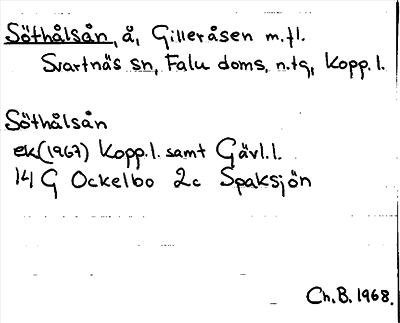 Söthålsån, å, Gilleråsen m.fl.
Svartnäs sn, Falu doms. n.tg, Kopp.l.
Söthålsån
ek(1967) Kopp.l. samt Gävl.l.
14 G Ockelbo 2c Spaksjön
Ch.B. 1968.